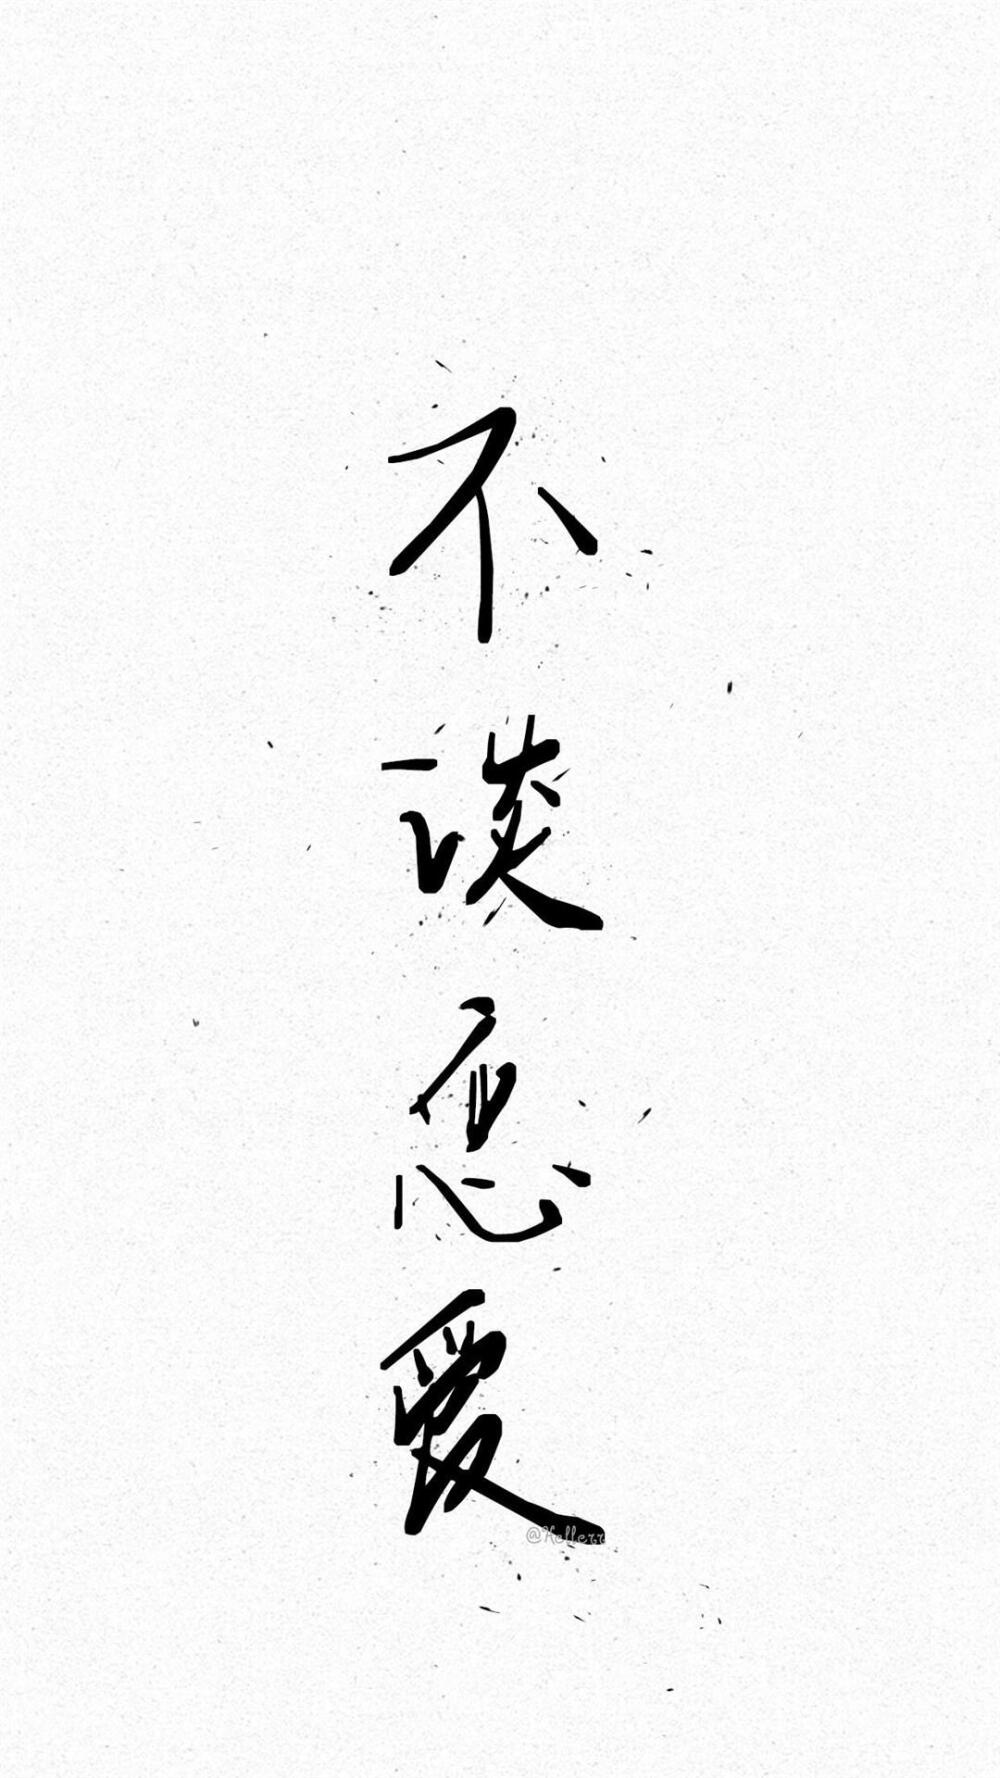 不谈恋爱
@Hellerr